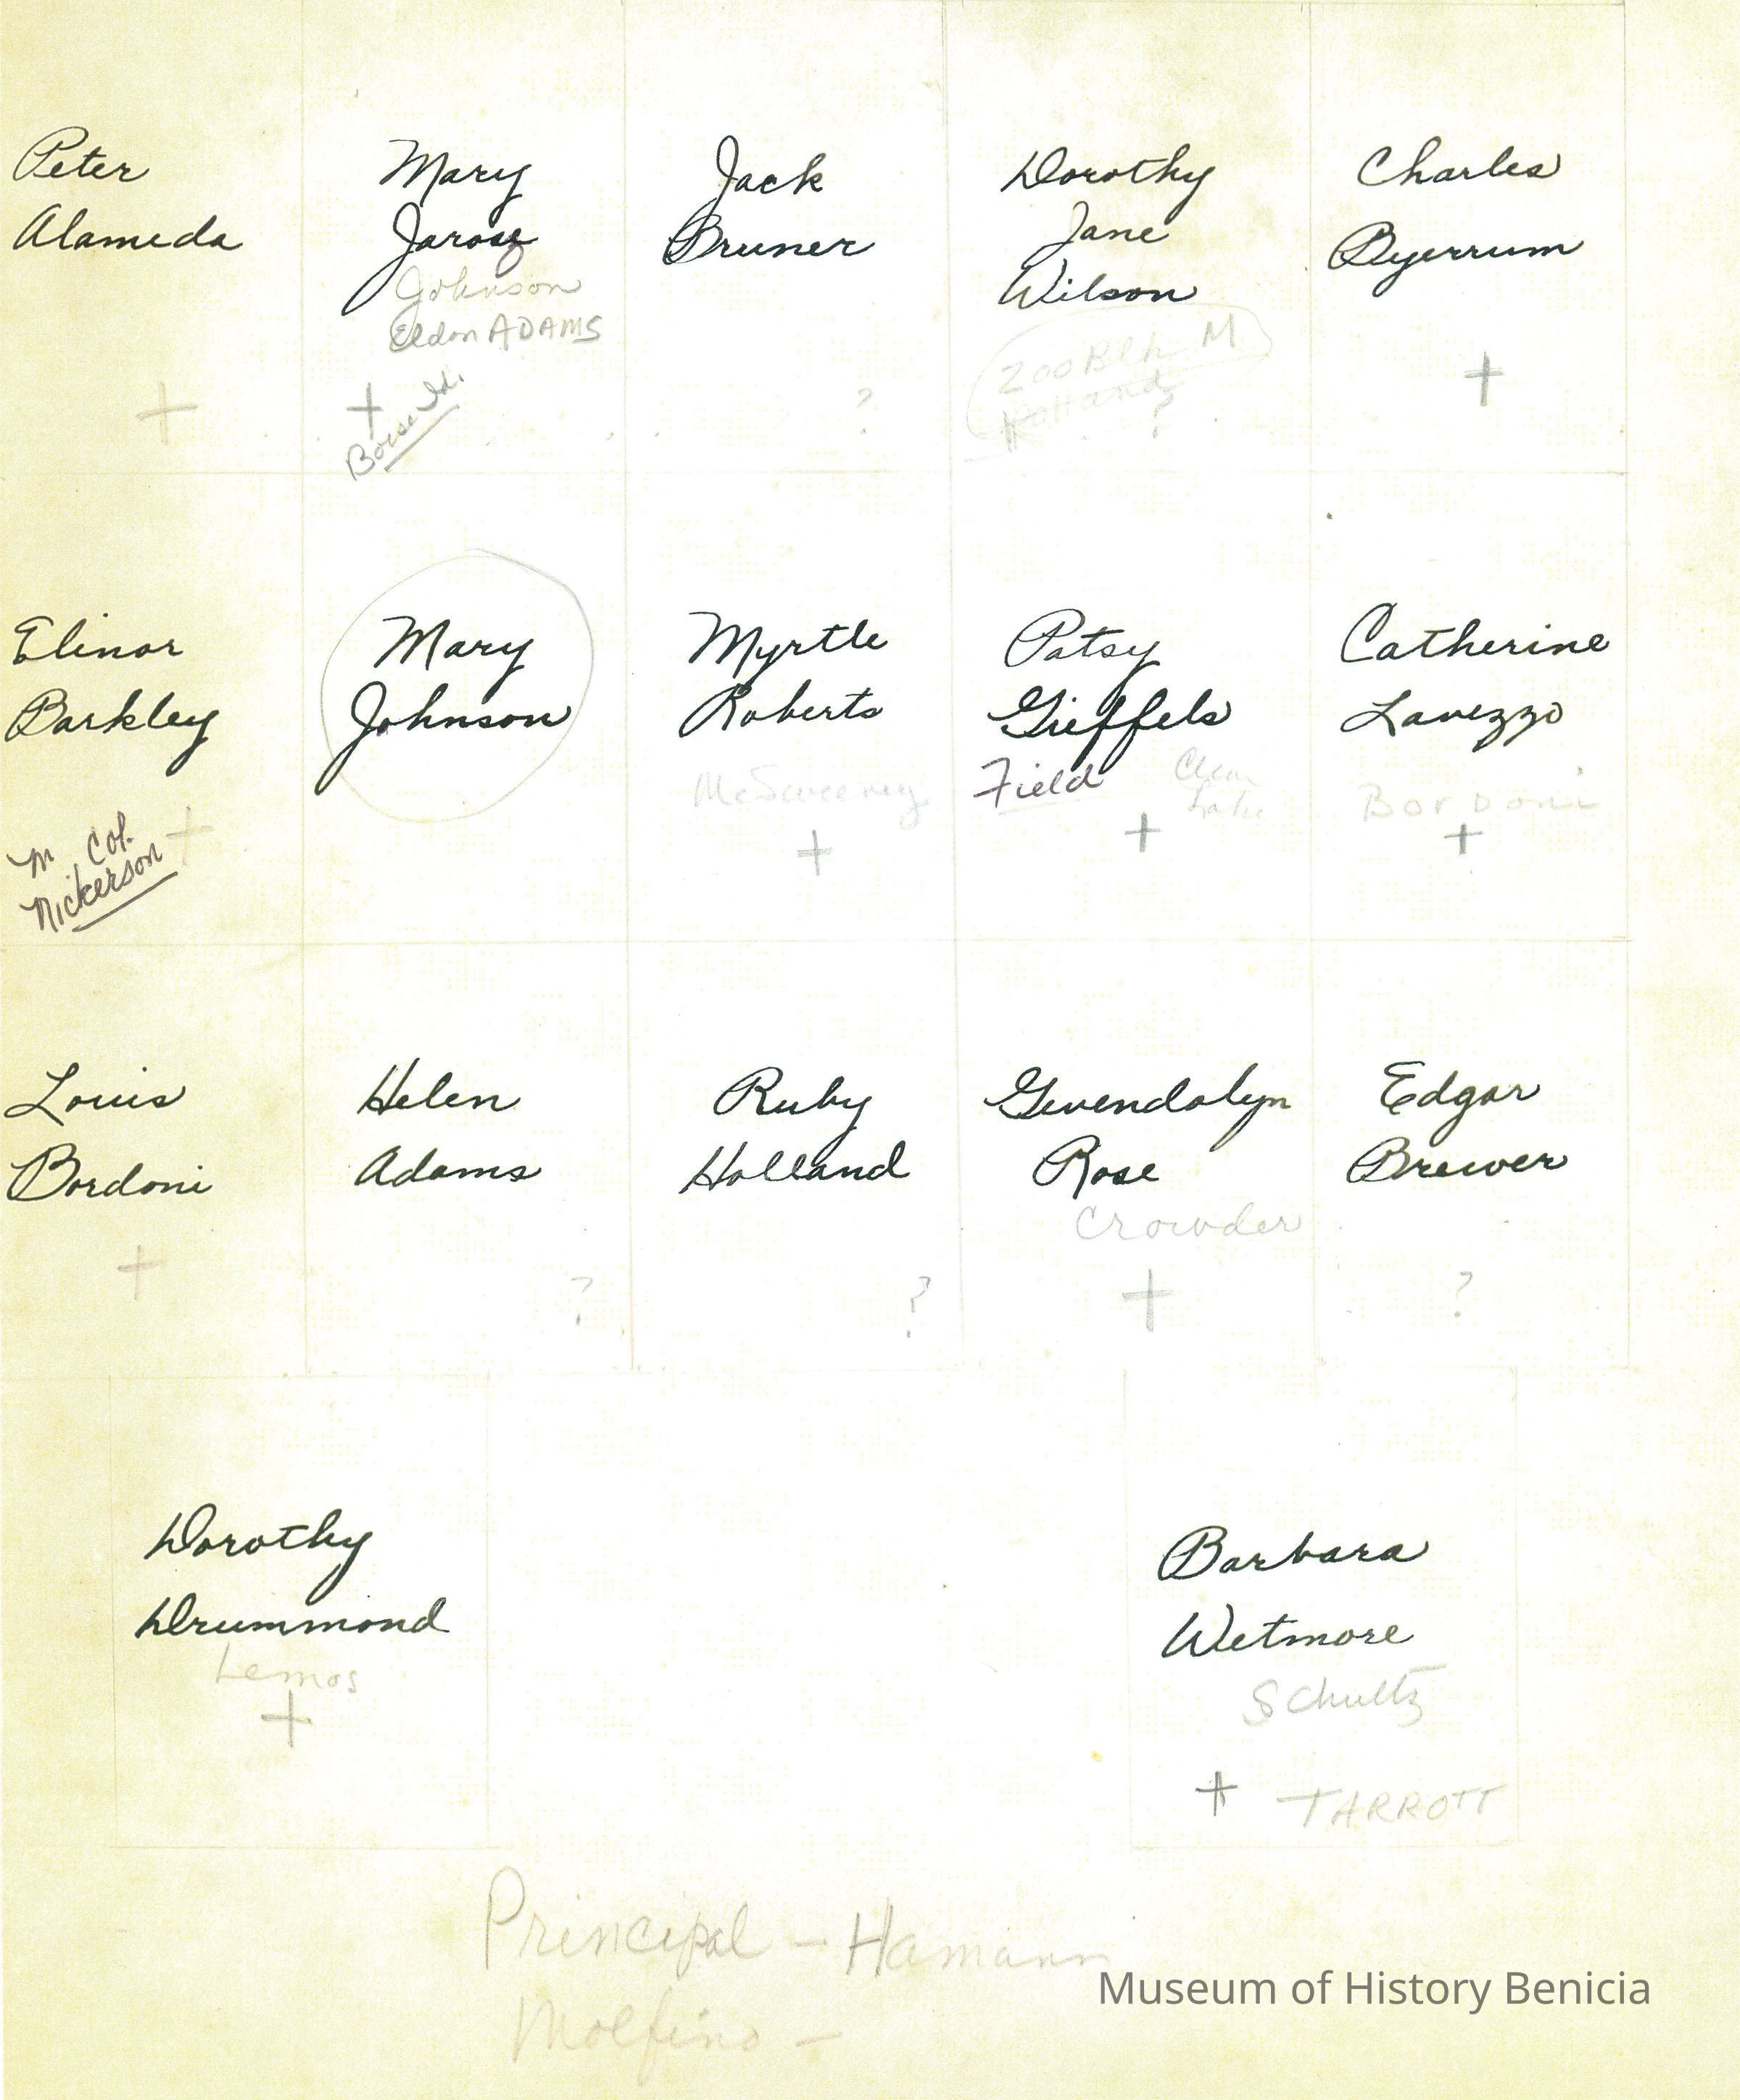 Peter
Alameda
+
Mary
Jarosz
Johnson
Eldon ADAMS
+
Boise Id.
Jack
Bruner
?
Dorothy
Jane
Wilson
200 Blk M
?
Charles
Byerrum
+
Elinor
Barkley
+
m Col.
Nickerson
Mary
Johnson
Myrtle
Roberts
McSweeney
+
Patsy
Gieffels
Field
Clear
Lake
+
Catherine
Lavezzo
Bordoni
+
Louis
Bordoni
+
Helen
Adams
?
Ruby
Holland
?
Gwendolyn
Rose
Crowder
+
Edgar
Brewer
?
Dorothy
Drummond
Lemos
+
Barbara
Wetmore
Schultz
+ TARROTT
Principal - Hamann
Molfino -
Museum of History Benicia